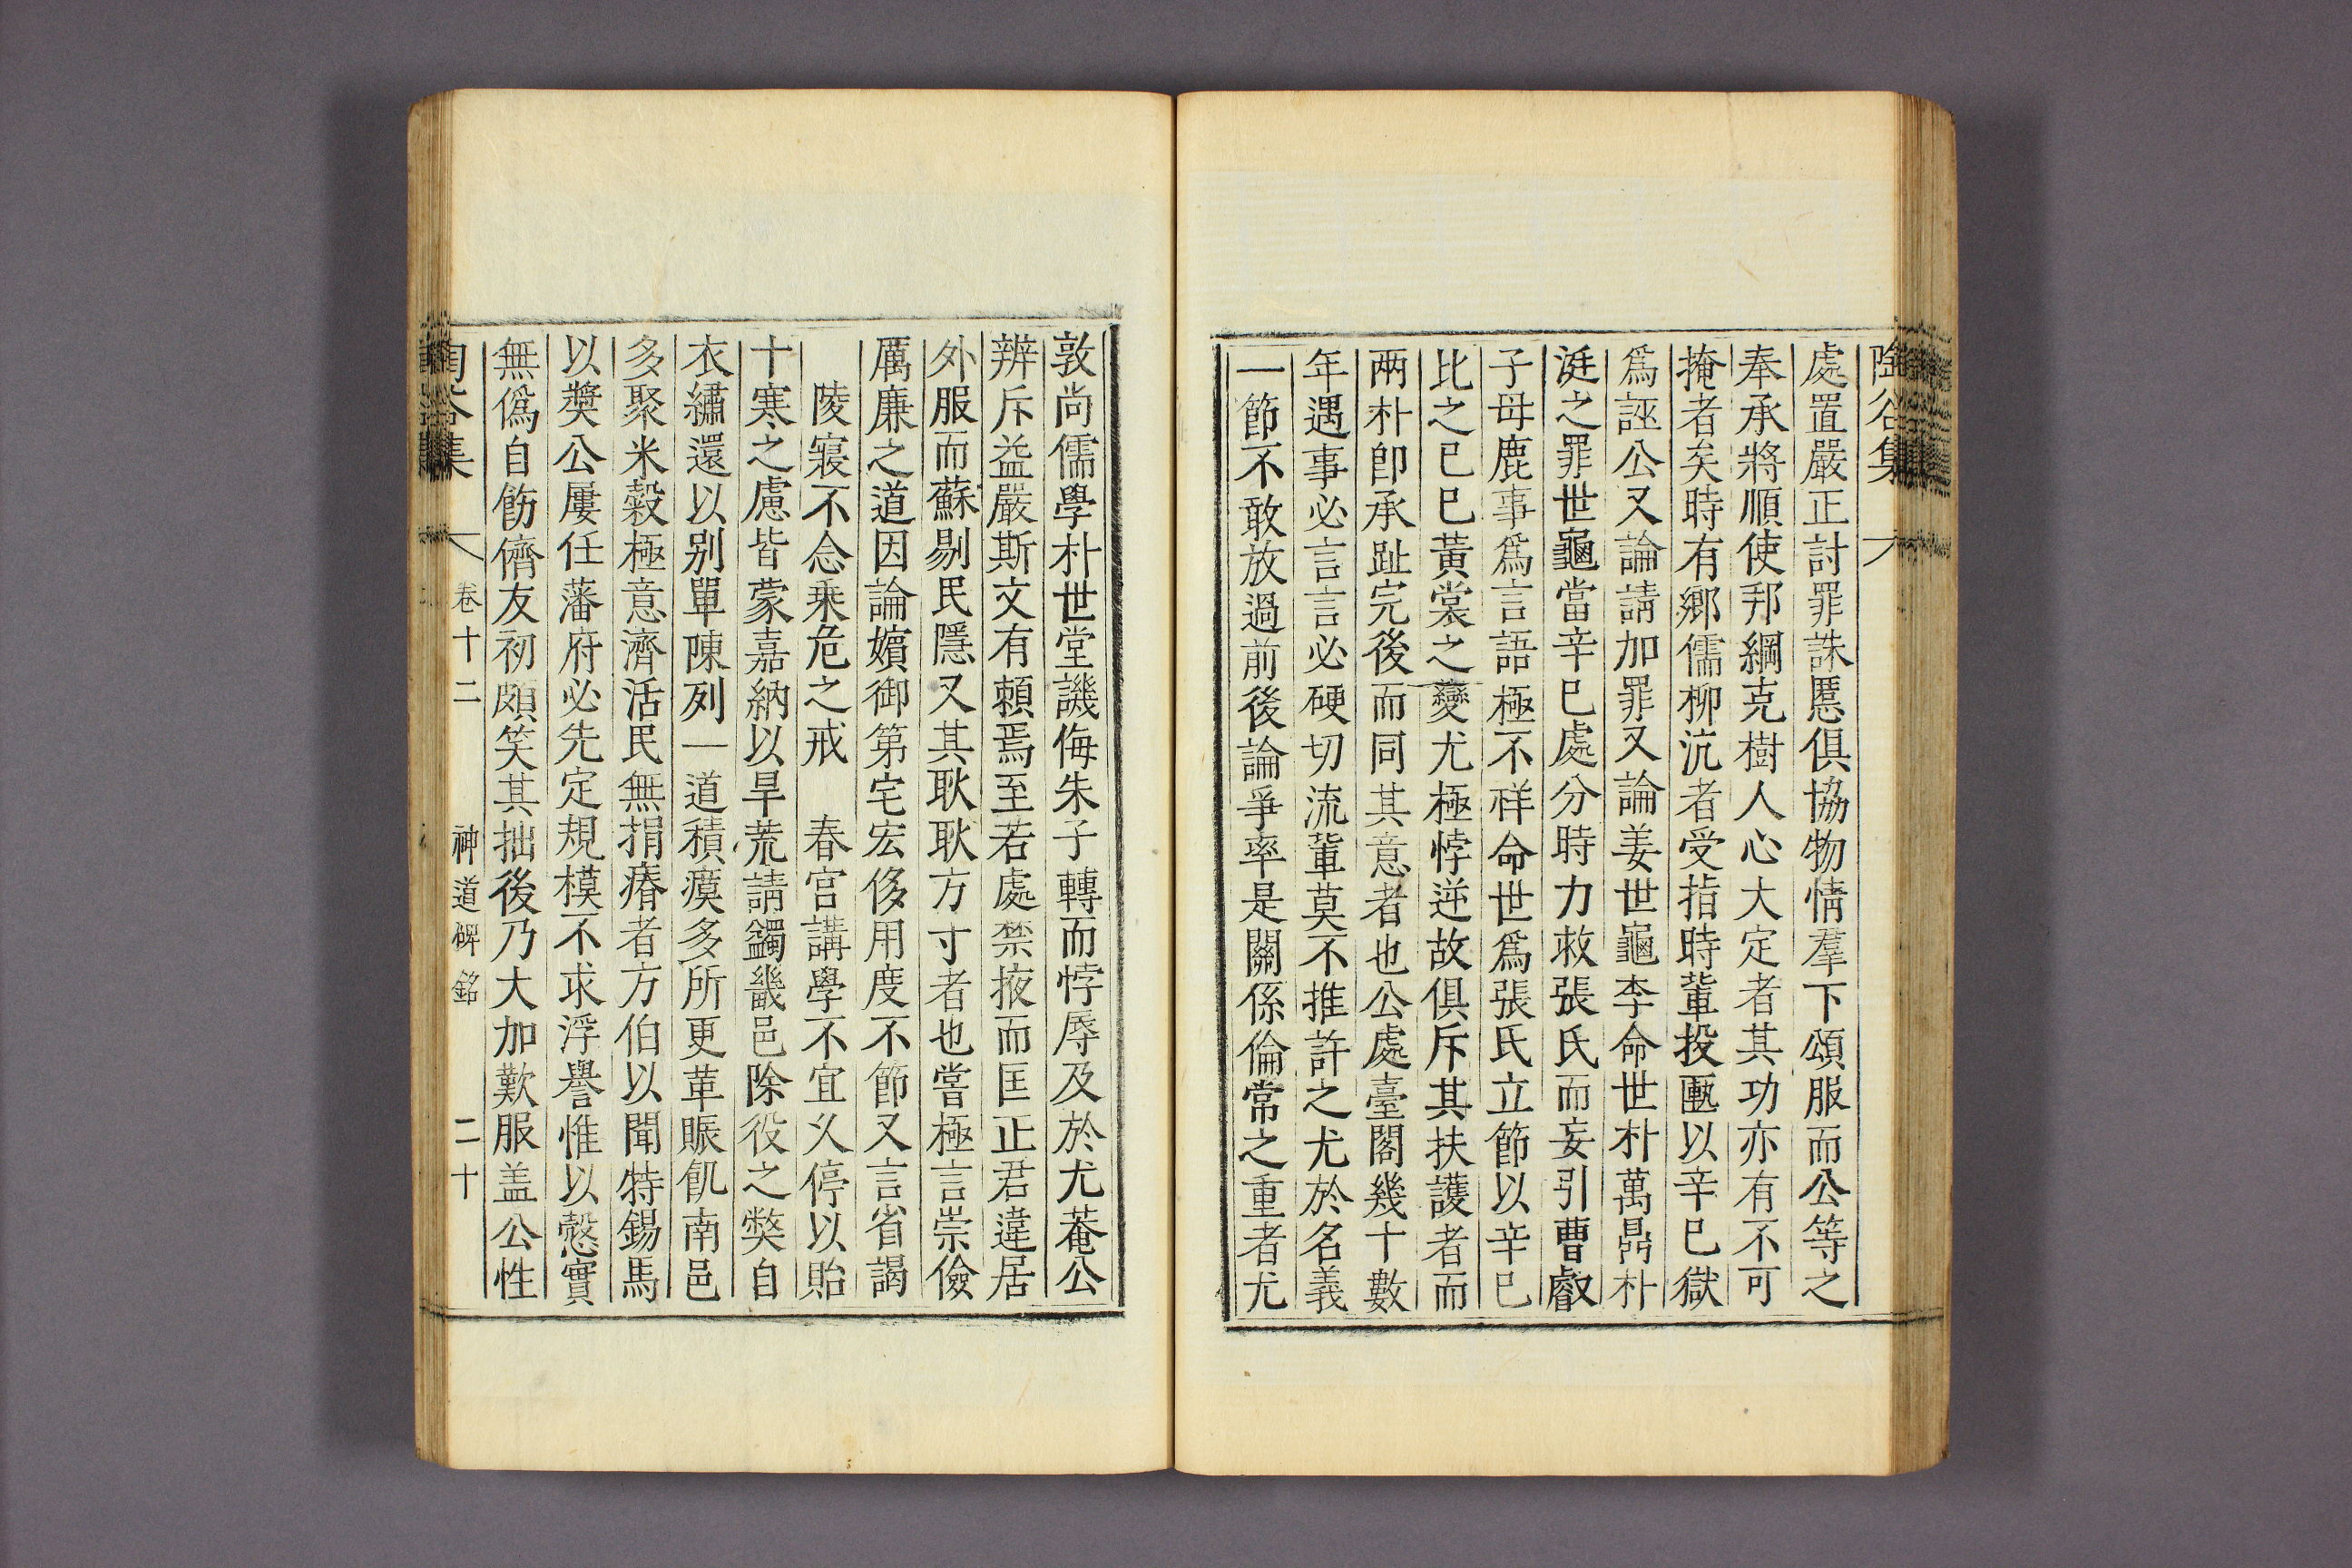 陶谷集
處置嚴正討罪誅慝俱協物情羣下頌服而公等之
奉承將順使邦綱克樹人心大定者其功亦有不可
掩者矣時有鄕儒柳沆者受指時軰投匭以辛巳獄
爲誣公又論請加罪又論姜世龜李命世朴萬鼎朴
涏之罪世龜當辛巳處分時力救張氏而妄引曹叡
子母鹿事爲言語極不祥命世爲張氏立節以辛巳
比之己巳黃裳之變尤極悖逆故俱斥其扶護者而
兩朴卽承趾完後而同其意者也公處臺閣幾十數
年遇事必言言必硬切流軰莫不推許之尤於名義
一節不敢放過前後論爭率是關係倫常之重者尤
敦尙儒學朴世堂譏侮朱子轉而悖辱及於尤菴公
辨斥益嚴斯文有賴焉至若處禁掖而匡正君違居
外服而蘇剔民隱又其耿耿方寸者也嘗極言崇儉
厲廉之道因論嬪御第宅宏侈用度不節又言省謁
陵寢不念乗危之戒　春宮講學不宜久停以貽
十寒之慮皆蒙嘉納以旱荒請蠲畿邑除役之弊自
衣繡還以别單陳列一道積瘼多所更革賑飢南邑
多聚米糓極意濟活民無捐瘠者方伯以聞特錫馬
以奬公屢任藩府必先定規模不求浮譽惟以慤實
無僞自飭儕友初頗笑其拙後乃大加歎服盖公性
陶谷集　卷十二　神道碑銘　二十